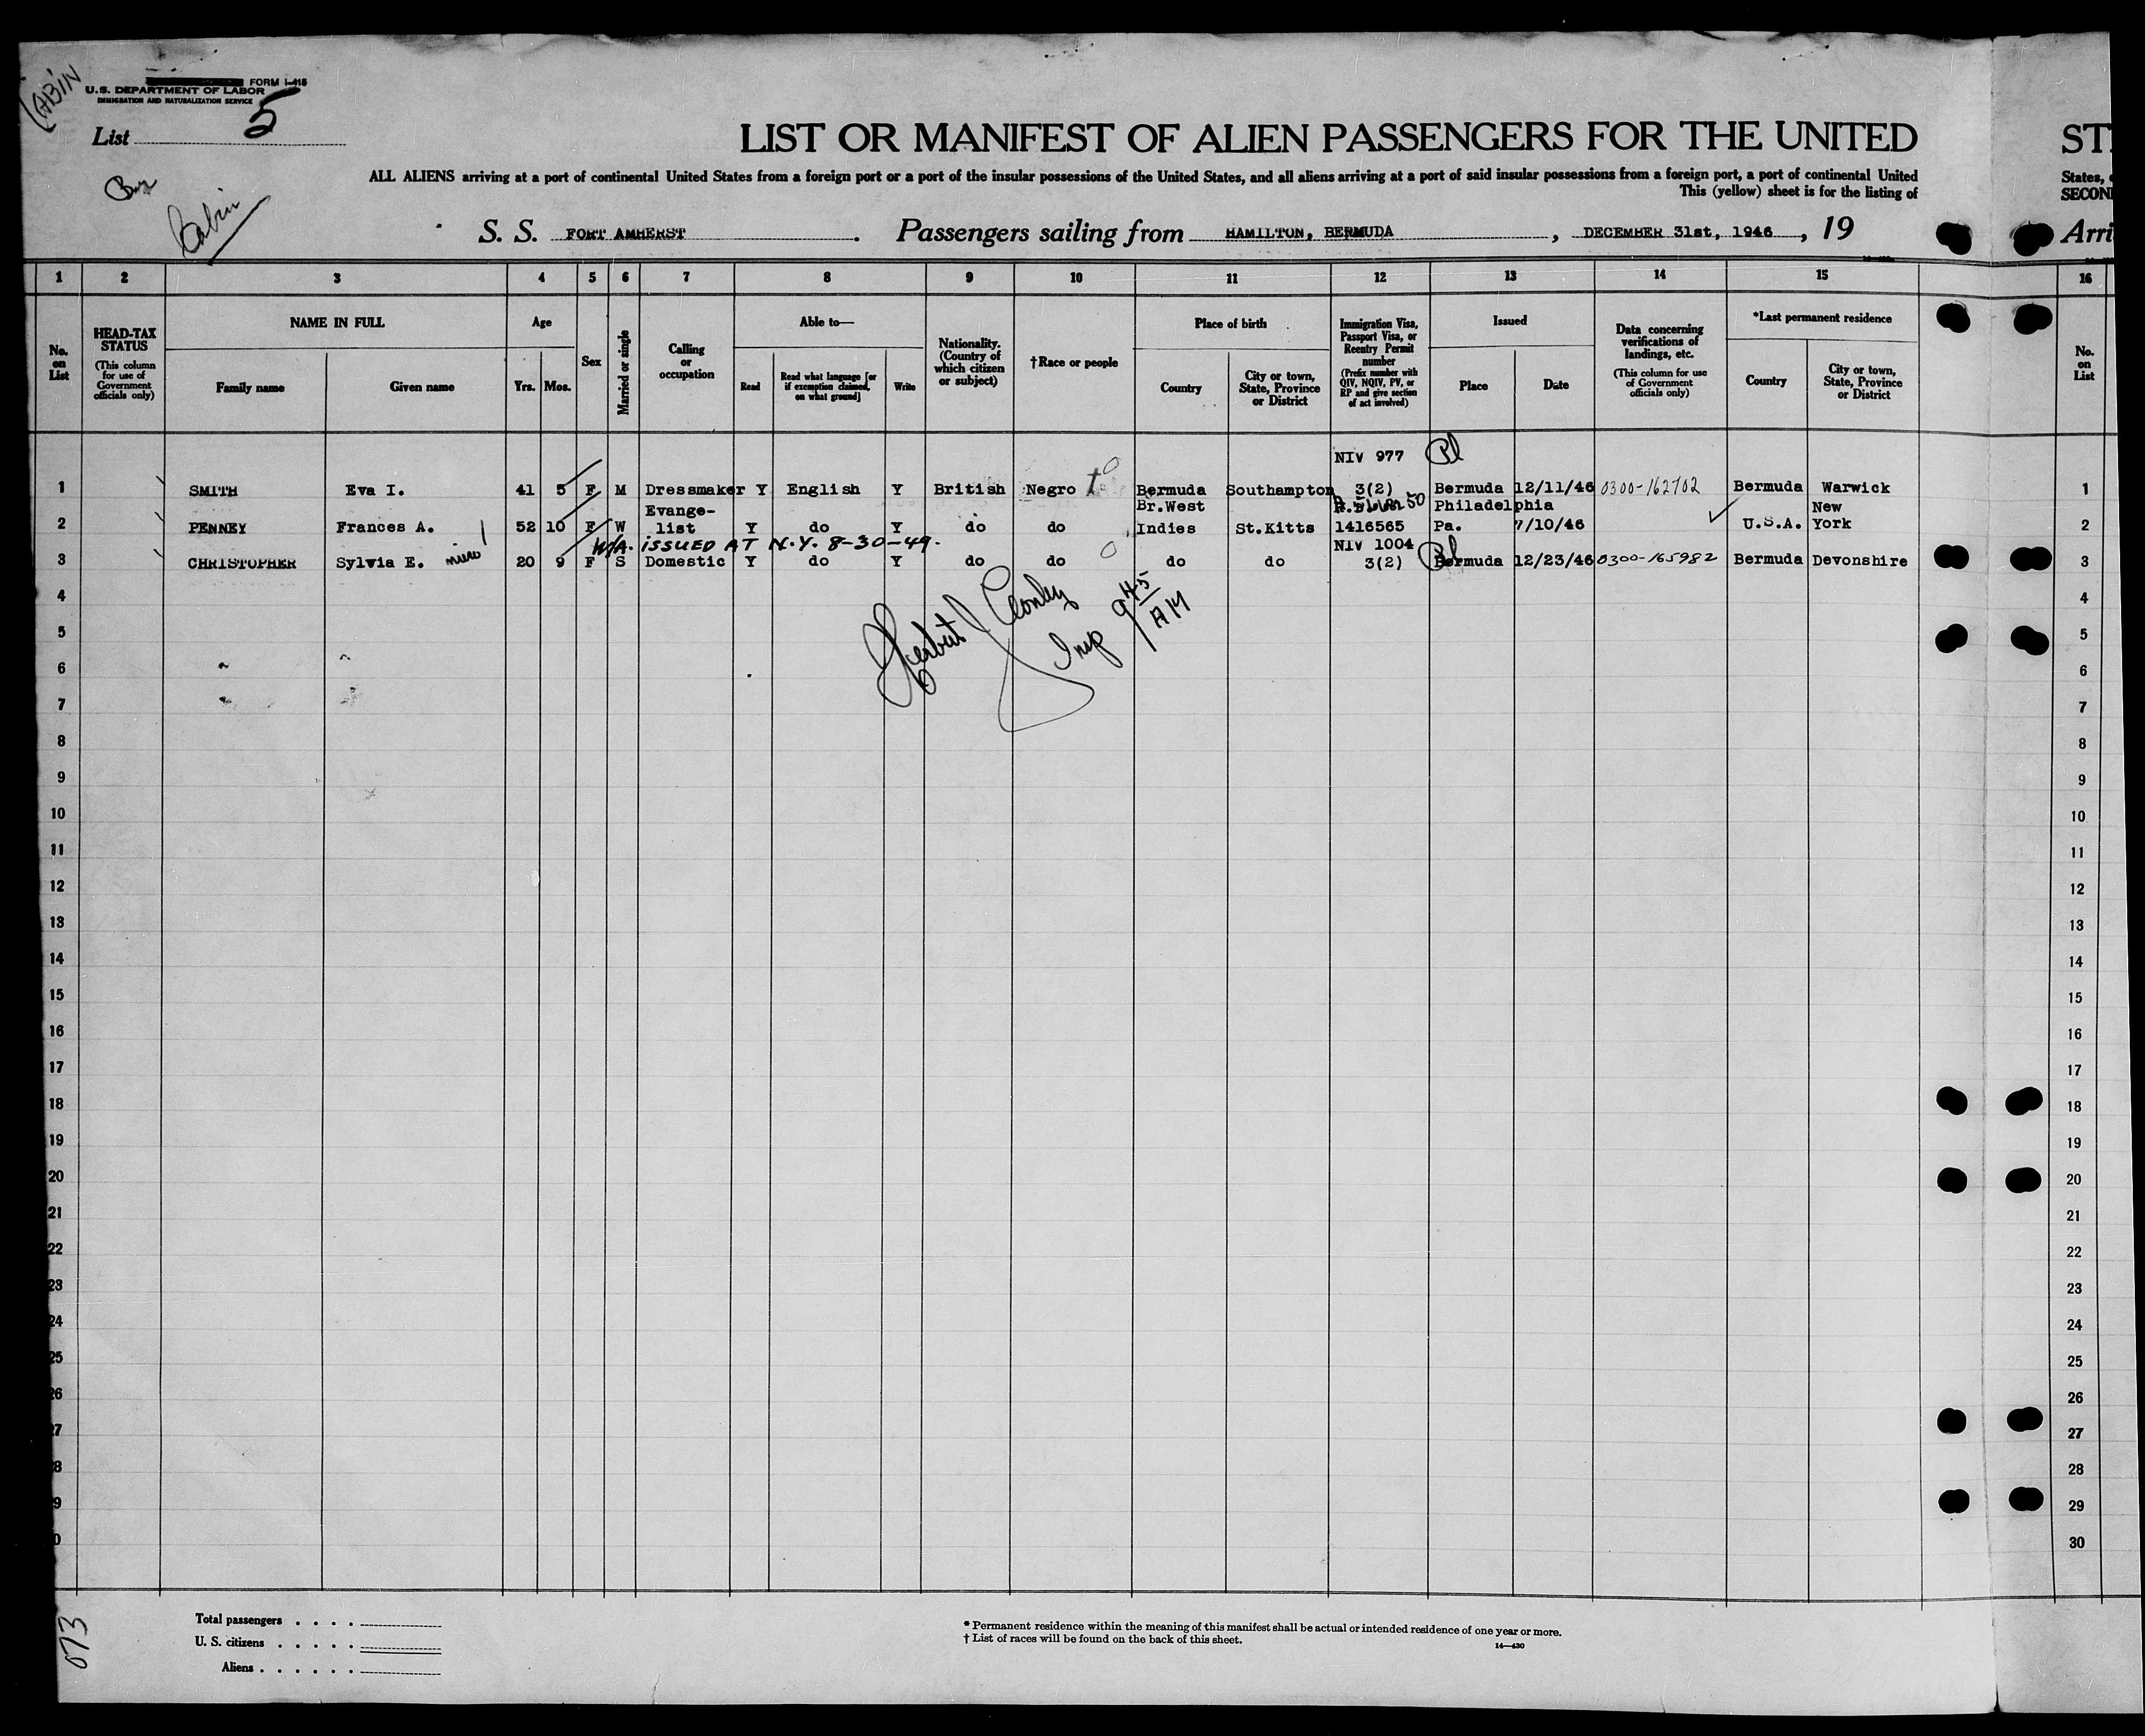 CABIN
FORM I-415
U.S. DEPARTMENT OF LABOR
IMMIGRATION AND NATURALIZATION SERVICE
List 5
LIST OR MANIFEST OF ALIEN PASSENGERS FOR THE UNITED
ALL ALIENS arriving at a port of continental United States from a foreign port or a port of the insular possessions of the United States, and all aliens arriving at a port of said insular possessions from a foreign port, a port of continental United
This (yellow) sheet is for the listing of
Cabin
S. S. FORT AMHERST. Passengers sailing from HAMILTON, BERMUDA, DECEMBER 31st, 1946, 19
ST
States,
SECON
Arri
1 2 3 4 5 6 7 8 9 10 11 12 13 14 15 16
No. on List
HEAD-TAX STATUS
(This column for use of Government officials only)
NAME IN FULL
Family name
Given name
Age
Yrs. Mos.
Sex
Married or single
Calling or occupation
Able to—
Read
Read what language [or if exemption claimed, on what ground]
Write
Nationality. (Country of which citizen or subject)
†Race or people
Place of birth
Country
City or town, State, Province or District
Immigration Visa, Passport Visa, or Reentry Permit number
(Prefix number with QIV, NQIV, PV, or RP and give section of act involved)
Issued
Place
Date
Data concerning verifications of landings, etc.
(This column for use of Government officials only)
*Last permanent residence
Country
City or town, State, Province or District
No. on List
NIV 977
1 SMITH Eva I. 41 5 F M Dressmaker Y English Y British Negro Bermuda Southampton 3(2) Bermuda 12/11/46 0300-162702 Bermuda Warwick 1
Evange- Br.West Philadelphia New
2 PENNEY Frances A. 52 10 F W list Y do Y do do Indies St.Kitts 1416565 Pa. 7/10/46 U.S.A. York 2
W/A. ISSUED AT N.Y. 8-30-49. NIV 1004
3 CHRISTOPHER Sylvia E. 20 9 F S Domestic Y do Y do do do do 3(2) Bermuda 12/23/46 0300-165982 Bermuda Devonshire 3
4 4
5 5
6 6
7 7
8 8
9 9
10 10
11 11
12 12
13 13
14 14
15 15
16 16
17 17
18 18
19 19
20 20
21 21
22 22
23 23
24 24
25 25
26 26
27 27
28 28
29 29
30
Insp 9 45 AM
073
Total passengers . . . .
U. S. citizens . . . . .
Aliens . . . . . .
* Permanent residence within the meaning of this manifest shall be actual or intended residence of one year or more.
† List of races will be found on the back of this sheet.
14—430